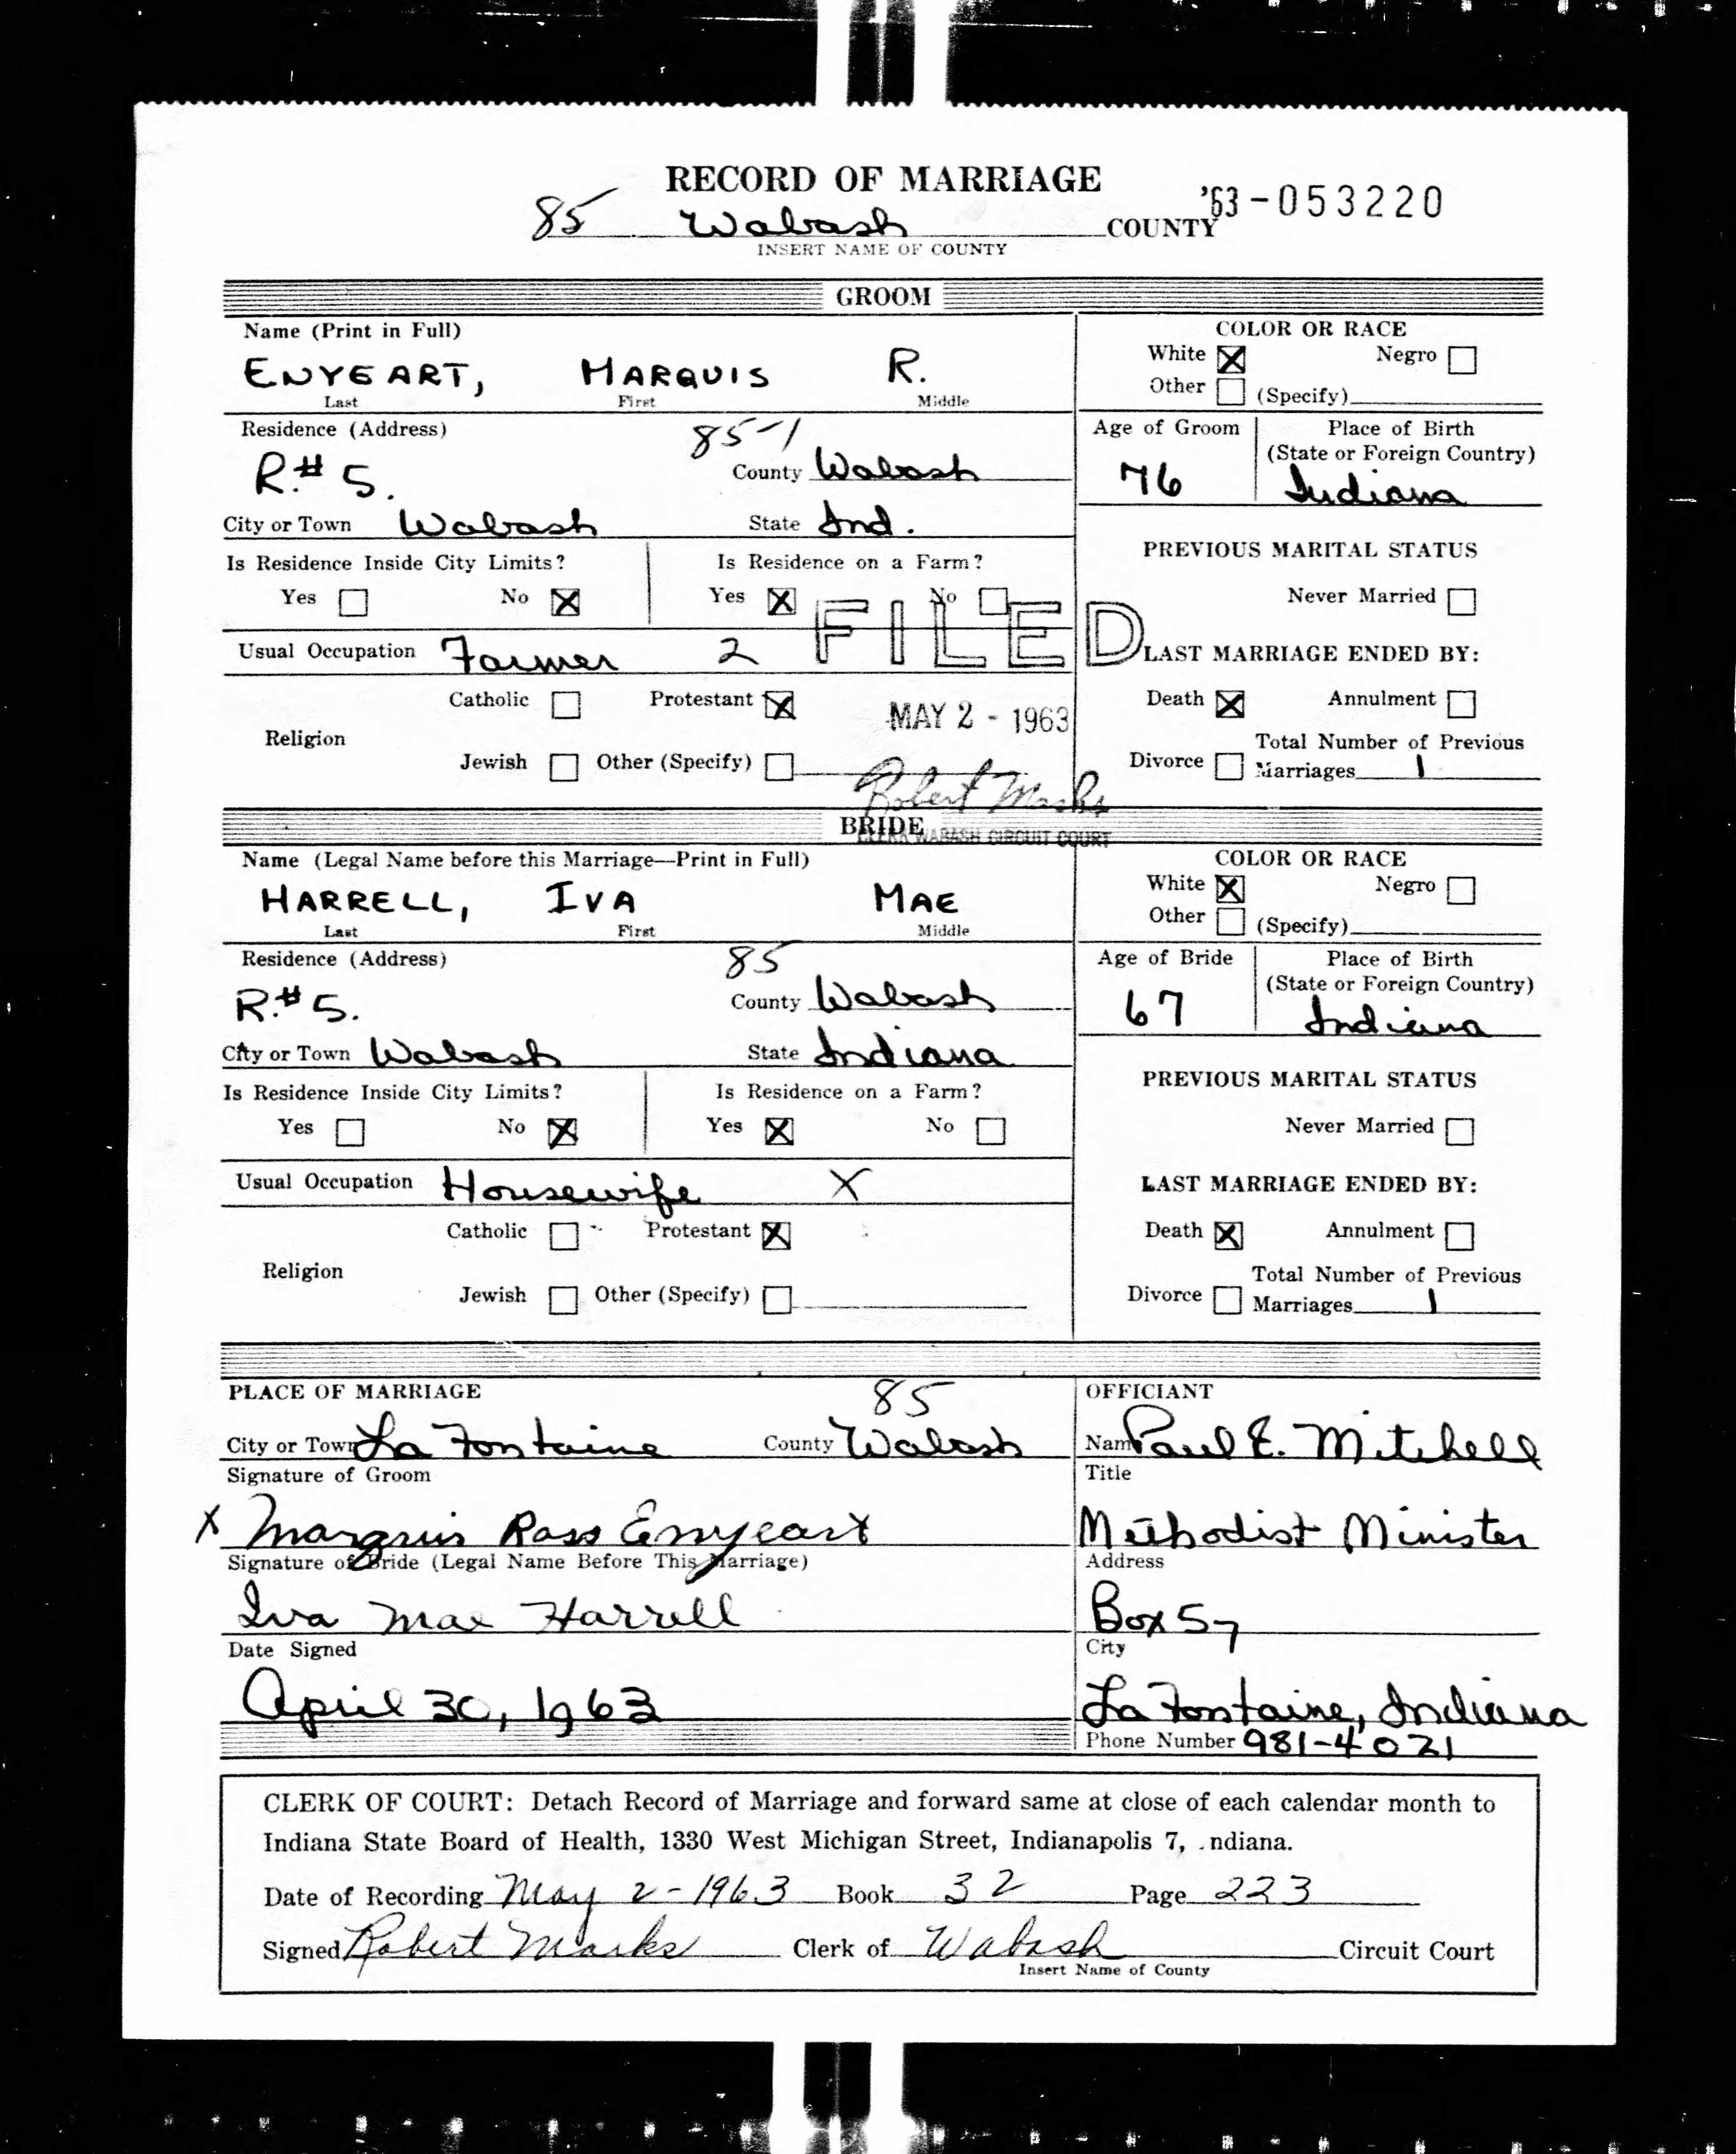 RECORD OF MARRIAGE
85 Wabash COUNTY '63-053220
INSERT NAME OF COUNTY
GROOM
Name (Print in Full)
ENYEART, MARQUIS R.
Last First Middle
COLOR OR RACE
White X Negro
Other (Specify)
Residence (Address) 85-1
R.# 5. County Wabash
City or Town Wabash State Ind.
Age of Groom
76
Place of Birth
(State or Foreign Country)
Indiana
Is Residence Inside City Limits?
Yes No X
Is Residence on a Farm?
Yes X No
PREVIOUS MARITAL STATUS
Never Married
FILED
Usual Occupation Farmer 2
LAST MARRIAGE ENDED BY:
Religion
Catholic Protestant X
Jewish Other (Specify)
MAY 2 - 1963
Robert Marks
CLERK WABASH CIRCUIT COURT
Death X Annulment
Divorce Total Number of Previous
Marriages 1
BRIDE
Name (Legal Name before this Marriage—Print in Full)
HARRELL, IVA MAE
Last First Middle
COLOR OR RACE
White X Negro
Other (Specify)
Residence (Address) 85
R.# 5. County Wabash
City or Town Wabash State Indiana
Age of Bride
67
Place of Birth
(State or Foreign Country)
Indiana
Is Residence Inside City Limits?
Yes No X
Is Residence on a Farm?
Yes X No
PREVIOUS MARITAL STATUS
Never Married
Usual Occupation Housewife X
LAST MARRIAGE ENDED BY:
Religion
Catholic Protestant X
Jewish Other (Specify)
Death X Annulment
Divorce Total Number of Previous
Marriages 1
PLACE OF MARRIAGE 85
City or Town La Fontaine County Wabash
Signature of Groom
X Marquis Ross Enyeart
Signature of Bride (Legal Name Before This Marriage)
Iva Mae Harrell
Date Signed
April 30, 1963
OFFICIANT
Name Paul E. Mitchell
Title
Methodist Minister
Address
Box 57
City
La Fontaine, Indiana
Phone Number 981-4021
CLERK OF COURT: Detach Record of Marriage and forward same at close of each calendar month to
Indiana State Board of Health, 1330 West Michigan Street, Indianapolis 7, .ndiana.
Date of Recording May 2-1963 Book 32 Page 223
Signed Robert Marks Clerk of Wabash Circuit Court
Insert Name of County